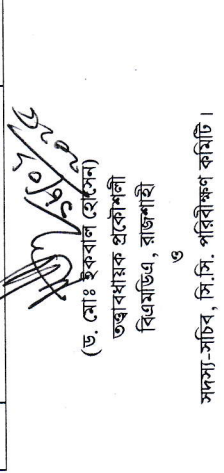 (ড. মোঃ ইকবাল হোসেন)
তত্ত্বাবধায়ক প্রকৌশলী
বিএমডিএ, রাজশাহী
ও
সদস্য-সচিব, সি.সি. পরিবীক্ষণ কমিটি।